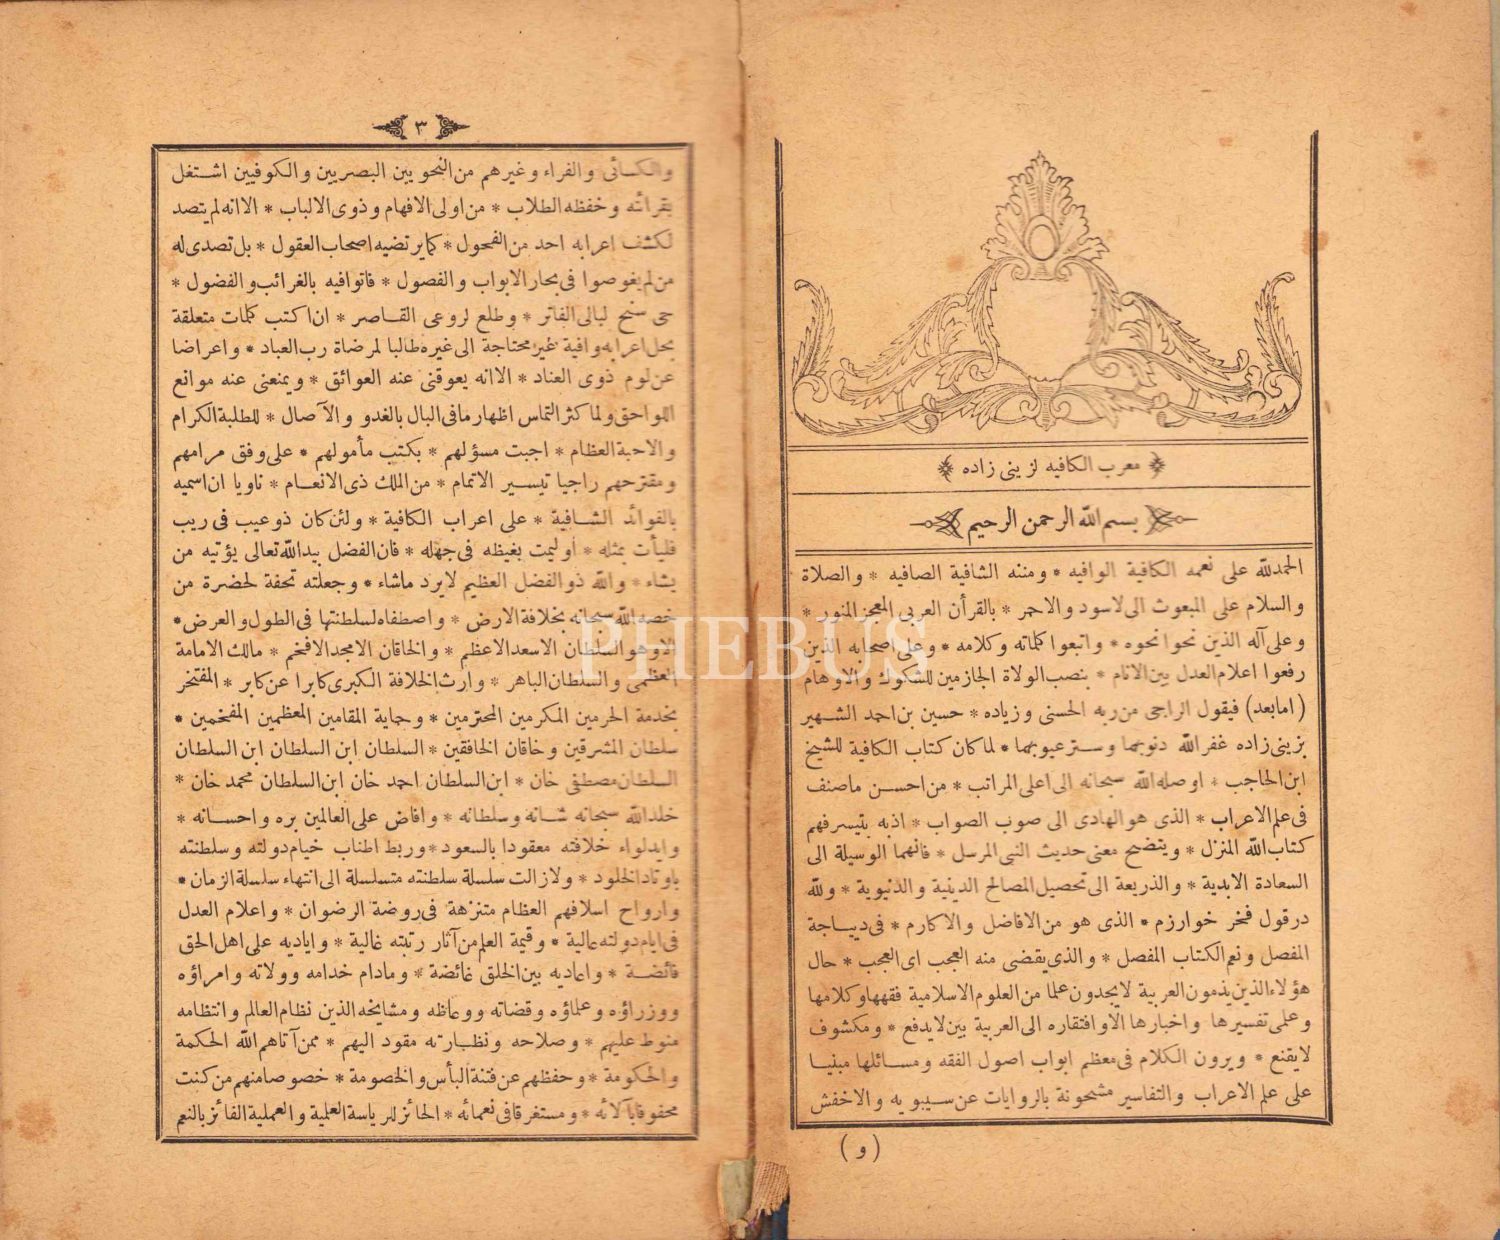 معرب الكافيه لزينى زاده
بسم الله الرحمن الرحيم
الحمدلله على نعمه الكافية الوافيه * ومننه الشافية الصافيه * والصلاة
والسلام على المبعوث الى لاسود والاحمر * بالقرأن العربى المعجز المنور *
وعلى آله الذين نحوا نحوه * واتبعوا كلماته وكلامه * وعلى اصحابه الذين
رفعوا اعلام العدل بين الانام * بنصب الولاة الجازمين للشكوك والاوهام
(امابعد) فيقول الراجى من ربه الحسنى وزياده * حسين بن احمد الشهير
بزينى زاده غفر الله ذنوبهما وستر عيوبهما * لما كان كتاب الكافية للشيخ
ابن الحاجب * اوصله الله سبحانه الى اعلى المراتب * من احسن ماصنف
فى علم الاعراب * الذى هو الهادى الى صوب الصواب * اذبه يتيسر فهم
كتاب الله المنزل * ويتضح معنى حديث النبى المرسل * فانهما الوسيلة الى
السعادة الابدية * والذريعة الى تحصيل المصالح الدينية والدنيوية * ولله
درقول فخر خوارزم * الذى هو من الافاضل والاكارم * فى ديباجة
المفصل ونعم الكتاب المفصل * والذى يقضى منه العجب اى العجب * حال
هؤلاء الذين يذمون العربية لايجدون علما من العلوم الاسلامية فقهها وكلامها
وعلمى تفسيرها واخبارها الاوافتقاره الى العربية بين لايدفع * ومكشوف
لايقنع * ويرون الكلام فى معظم ابواب اصول الفقه ومسائلها مبنيا
على علم الاعراب والتفاسير مشحونة بالروايات عن سيبويه والاخفش
(و)
٣
والكسائى والفراء وغيرهم من النحويين البصريين والكوفيين اشتغل
بقرائته وحفظه الطلاب * من اولى الافهام وذوى الالباب * الاانه لم يتصد
لكشف اعرابه احد من الفحول * كمايرتضيه اصحاب العقول * بل تصدى له
من لم يغوصوا فى بحار الابواب والفصول * فاتوافيه بالغرائب والفضول *
حى سنح لبالى الفاتر * وطلع لروعى القاصر * ان اكتب كلمات متعلقة
بحل اعرابه وافية غير محتاجة الى غيره طالبا لمرضاة رب العباد * واعراضا
عن لوم ذوى العناد * الاانه يعوقنى عنه العوائق * ويمنعنى عنه موانع
اللواحق ولما كثر التماس اظهار مافى البال بالغدو والآصال * للطلبة الكرام
والاحبة العظام * اجبت مسؤلهم * بكتب مأمولهم * على وفق مرامهم
ومقترحهم راجيا تيسير الاتمام * من الملك ذى الانعام * ناويا ان اسميه
بالفوائد الشافية * على اعراب الكافية * ولئن كان ذوعيب فى ريب
فليأت بمثله * اوليمت بغيظه فى جهله * فان الفضل بيد الله تعالى يؤتيه من
يشاء * والله ذوالفضل العظيم لايرد ماشاء * وجعلته تحفة لحضرة من
خصه الله سبحانه بخلافة الارض * واصطفاه لسلطنتها فى الطول والعرض *
الاوهو السلطان الاسعد الاعظم * والخاقان الامجد الافخم * مالك الامامة
العظمى والسلطان الباهر * وارث الخلافة الكبرى كابرا عن كابر * المفتخر
بخدمة الحرمين المكرمين المحترمين * وحماية المقامين المعظمين المفخمين *
سلطان المشرقين وخاقان الخافقين * السلطان ابن السلطان ابن السلطان
السلطان مصطفى خان * ابن السلطان احمد خان ابن السلطان محمد خان *
خلد الله سبحانه شانه وسلطانه * وافاض على العالمين بره واحسانه *
وايدلواء خلافته معقودا بالسعود * وربط اطناب خيام دولته وسلطنته
باوتاد الخلود * ولازالت سلسلة سلطنته متسلسلة الى انتهاء سلسلة الزمان *
وارواح اسلافهم العظام متنزهة فى روضة الرضوان * واعلام العدل
فى ايام دولته عالية * وقيمة العلم من آثار رتبته غالية * واياديه على اهل الحق
فائضة * واعاديه بين الخلق غائضة * ومادام خدامه وولاته وامراؤه
ووزراؤه وعلماؤه وقضاته ووعاظه ومشايخه الذين نظام العالم وانتظامه
منوط عليهم * وصلاحه ونظارته مقود اليهم * ممن آتاهم الله الحكمة
والحكومة * وحفظهم عن فتنة البأس والخصومة * خصوصا منهم من كنت
محفوفا بآلائه * ومستغرقا فى نعمائه * الحائز للرياسة العلية والعملية الفائز بالنعم
PHEBUS